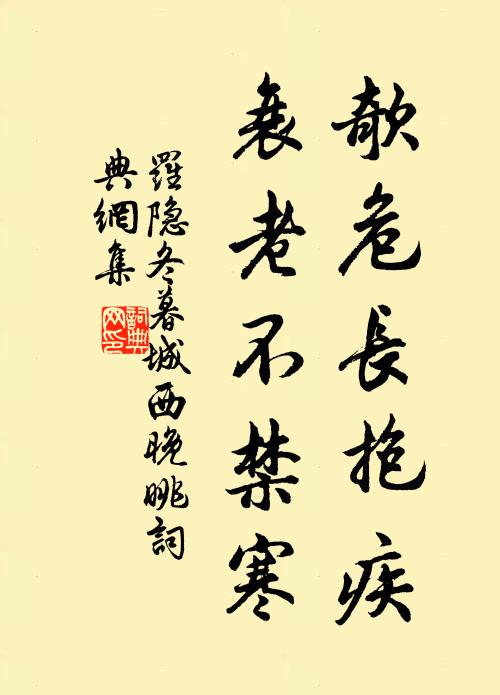 欹危長抱疾
衰老不禁寒
羅隐冬暮城西晚眺詞
典網集
詞典
网印